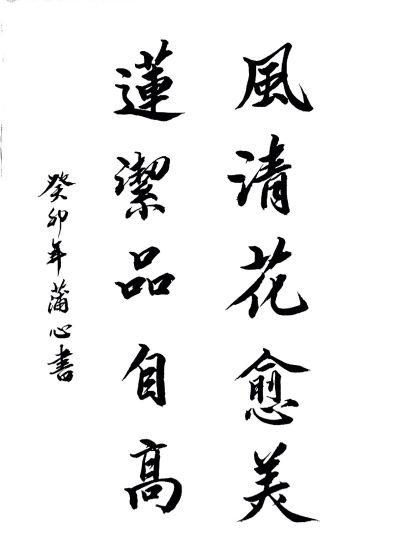 風清花愈美
蓮潔品自高
癸卯年蒲心書